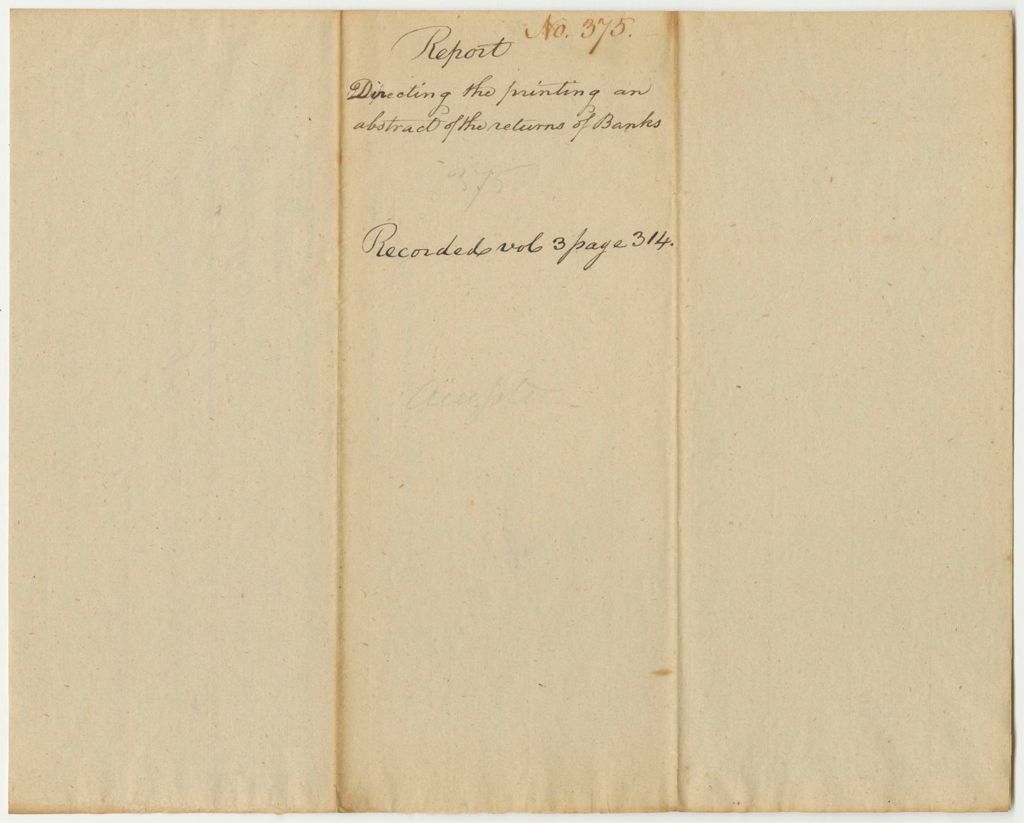 No. 375.
Report
Directing the printing an
abstract of the returns of Banks
375
Recorded vol 3 page 314.